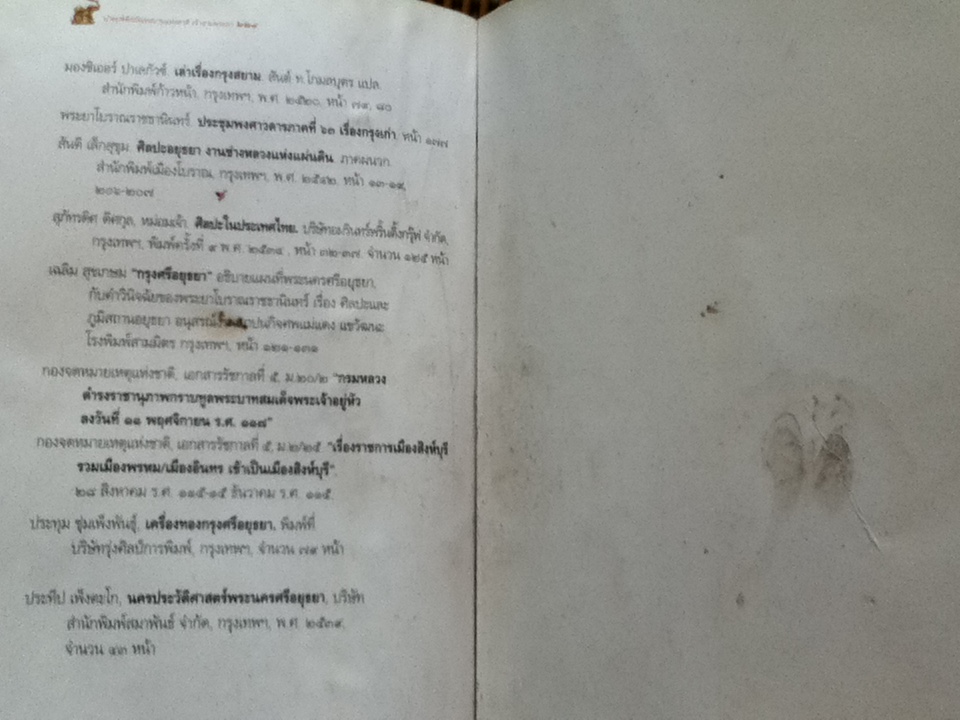 มองซิเออร์ ปาลเลกัวซ์. เล่าเรื่องกรุงสยาม. สันต์ ท.โกมลบุตร แปล.
สำนักพิมพ์ก้าวหน้า, กรุงเทพฯ, พ.ศ. ๒๕๒๐, หน้า ๗๙, ๘๐
พระยาโบราณราชธานินทร์. ประชุมพงศาวดารภาคที่ ๖๓ เรื่องกรุงเก่า. หน้า ๑๗๗
สันติ เล็กสุขุม. ศิลปะอยุธยา งานช่างหลวงแห่งแผ่นดิน. ภาคผนวก.
สำนักพิมพ์เมืองโบราณ, กรุงเทพฯ, พ.ศ. ๒๕๔๒. หน้า ๑๓-๑๙,
๒๐๖-๒๐๗
สุภัทรดิศ ดิศกุล, หม่อมเจ้า. ศิลปะในประเทศไทย. บริษัทอมรินทร์พริ้นติ้งกรุ๊ฟ จำกัด,
กรุงเทพฯ, พิมพ์ครั้งที่ ๙ พ.ศ. ๒๕๓๔ , หน้า ๓๒-๓๗. จำนวน ๑๒๕ หน้า
เฉลิม สุขเกษม "กรุงศรีอยุธยา" อธิบายแผนที่พระนครศรีอยุธยา,
กับคำวินิจฉัยของพระยาโบราณราชธานินทร์ เรื่อง ศิลปะและ
ภูมิสถานอยุธยา อนุสรณ์ ฌาปนกิจศพแม่แดง แขวัฒนะ
โรงพิมพ์สามมิตร กรุงเทพฯ, หน้า ๑๒๑-๑๓๑
กองจดหมายเหตุแห่งชาติ, เอกสารรัชกาลที่ ๕, ม.๒๐/๒ "กรมหลวง
ดำรงราชานุภาพกราบทูลพระบาทสมเด็จพระเจ้าอยู่หัว
ลงวันที่ ๑๑ พฤศจิกายน ร.ศ. ๑๑๘"
กองจดหมายเหตุแห่งชาติ, เอกสารรัชกาลที่ ๕, ม.๒/๒๕ "เรื่องราชการเมืองสิงห์บุรี
รวมเมืองพรหม/เมืองอินทร เข้าเป็นเมืองสิงห์บุรี".
๒๘ สิงหาคม ร.ศ. ๑๑๕-๑๕ ธันวาคม ร.ศ. ๑๑๕.
ประทุม ชุ่มเพ็งพันธุ์, เครื่องทองกรุงศรีอยุธยา. พิมพ์ที่
บริษัทรุ่งศิลป์การพิมพ์, กรุงเทพฯ, จำนวน ๗๙ หน้า
ประทีป เพ็งตะโก, นครประวัติศาสตร์พระนครศรีอยุธยา, บริษัท
สำนักพิมพ์สมาพันธ์ จำกัด, กรุงเทพฯ, พ.ศ. ๒๕๓๙.
จำนวน ๔๓ หน้า